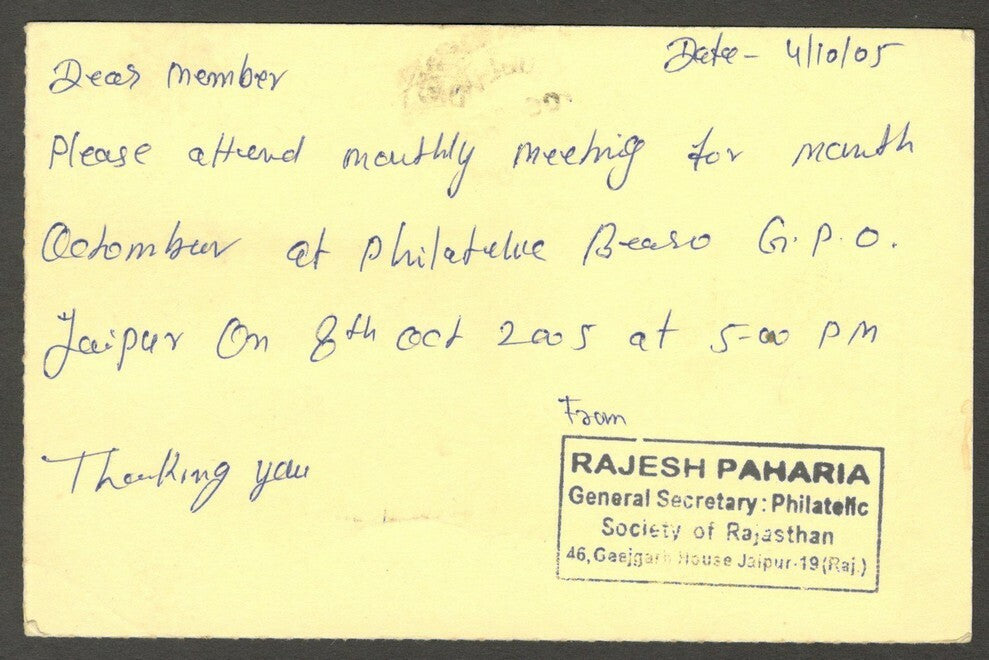 Date - 4/10/05
Dear Member
Please attend monthly meeting for month
Octombur at Philatelic Bearo G.P.O.
Jaipur On 8th Oct 2005 at 5-00 PM
Thanking you
From
RAJESH PAHARIA
General Secretary : Philatelic
Society of Rajasthan
46, House Jaipur-19 (Raj.)